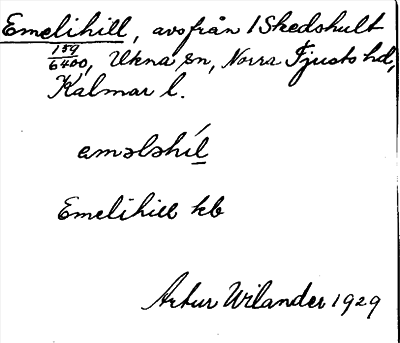 Emelihill, avs från 1 Skedshult
159/6400, Ukna sn, Norra Tjusts hd,
Kalmar l.
emələhíl
Emelihill kb
Artur Wilander 1929